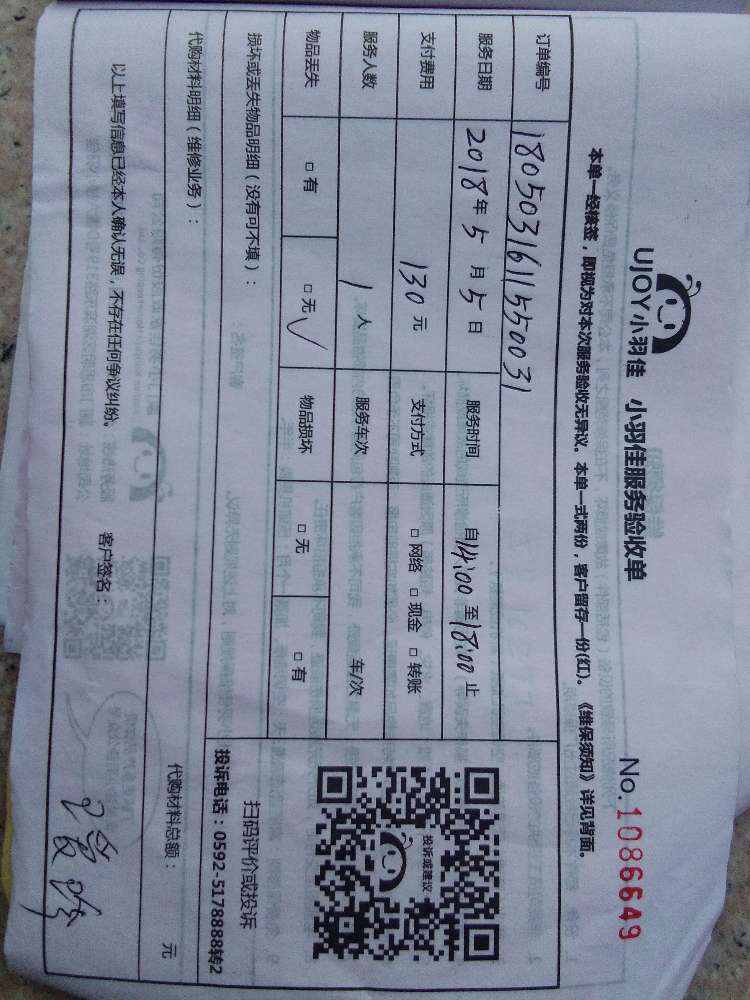 UJOY小羽佳 小羽佳服务验收单 No.1086649
本单一经核签，即视为对本次服务验收无异议。本单一式两份，客户留存一份(红)。《维保须知》详见背面。
订单编号 1805031611550031
服务日期 2018年5月5日 服务时间 自14:00至18:00止
支付费用 130元 支付方式 □网络 □现金 □转账
服务人数 1人 服务车次 车/次
物品丢失 □有 □无√ 物品损坏 □无 □有
投诉或建议
扫码评价或投诉
投诉电话：0592-5178888转2
损坏或丢失物品明细（没有可不填）：
代购材料明细（维修业务）： 代购材料总额： 元
以上填写信息已经本人确认无误，不存在任何争议纠纷。 客户签名：